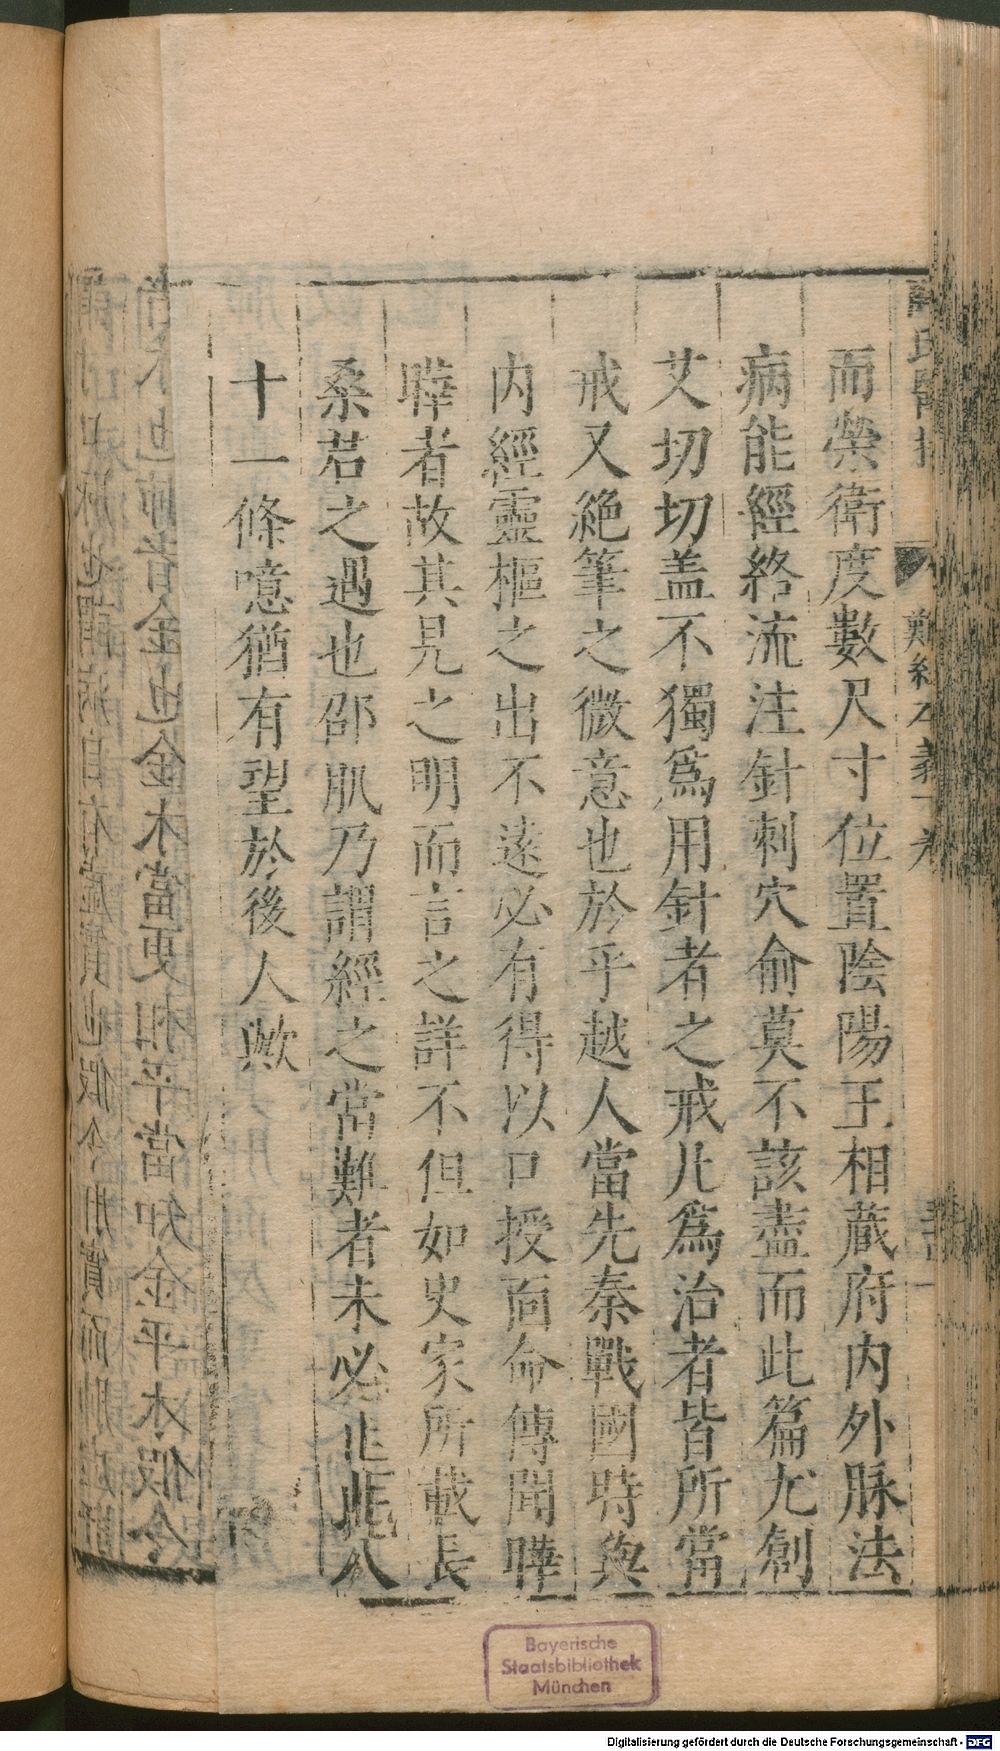 而榮衛度數尺寸位置陰陽王相蔵府内外脉法
病能經絡流注針刺穴俞莫不該盡而此篇尤創
艾切切盖不獨爲用針者之戒凡爲治者皆所當
戒又絶筆之微意也於乎越人當先秦戰國時與
内經靈樞之出不遠必有得以口授靣命傳聞曄
曄者故其見之明而言之詳不但如史家所載長
桑君之遇也邵肌乃謂經之當難者未必止此八
十一條噫猶有望於後人歟
難經本義下卷
Bayerische
Staatsbibliothek
München
Digitalisierung gefördert durch die Deutsche Forschungsgemeinschaft - DFG